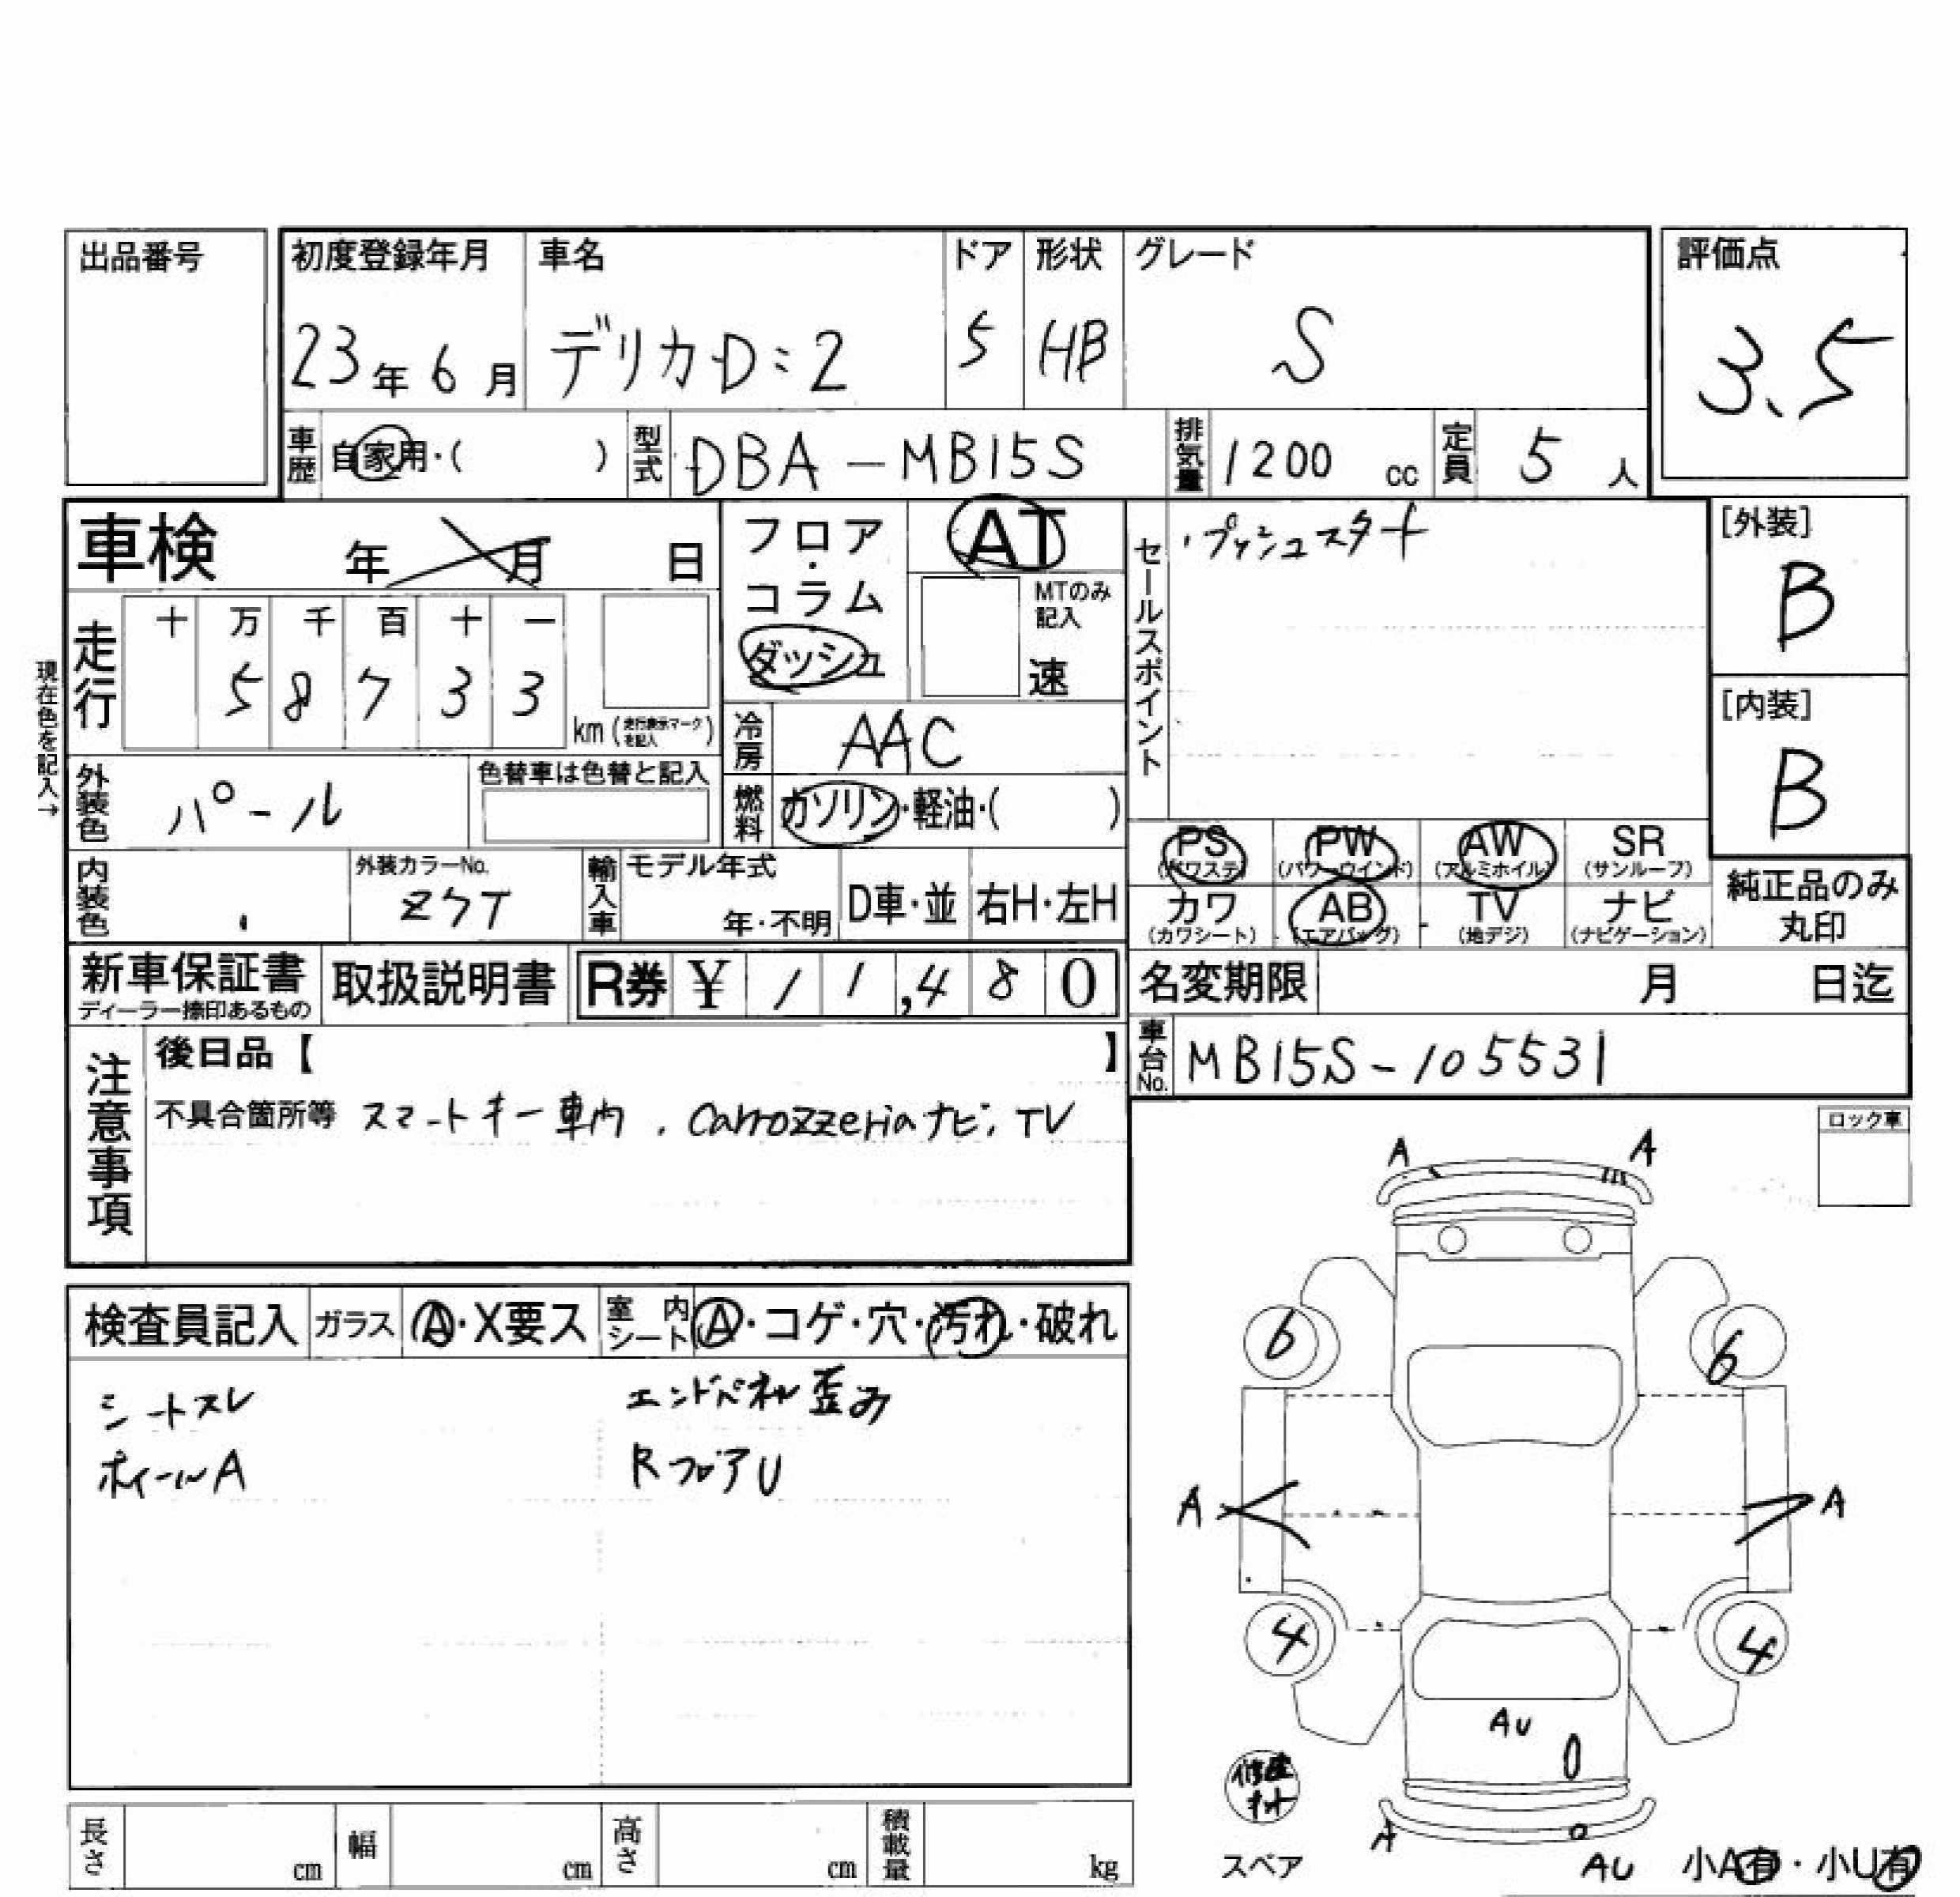 出品番号
初度登録年月 車名 ドア 形状 グレード 評価点
23年6月 デリカD:2 5 HB S 3.5
車歴 自家用・( ) 型式 DBA-MB15S 排気量 1200 cc 定員 5 人
車検 年 月 日 フロア・コラム ダッシュ AT
MTのみ記入 速
セールスポイント ・プッシュスタート
[外装] B
[内装] B
現在色を記入→
走行 十 万 千 百 十 一
5 8 7 3 3 km (走行表示マークを記入)
冷房 AAC
外装色 パール 色替車は色替と記入
燃料 ガソリン・軽油・( )
内装色 外装カラーNo. Z7T 輸入車 モデル年式 年・不明 D車・並 右H・左H
PS (パワステ) PW (パワーウインド) AW (アルミホイル) SR (サンルーフ)
カワ (カワシート) AB (エアバッグ) TV (地デジ) ナビ (ナビゲーション)
純正品のみ丸印
新車保証書 ディーラー捺印あるもの 取扱説明書 R券 ¥ 11,480 名変期限 月 日迄
車台No. MB15S-105531
注意事項 後日品【 】
不具合箇所等 スマートキー車内 . Carrozzeriaナビ, TV
ロック車
検査員記入 ガラス A・X要ス 室内シート A・コゲ・穴・汚れ・破れ
シートスレ エンドパネル歪み
ホイールA RフロアU
A A
6 6
A A
4 4
AU
修理キット
A
スペア AU 小A有・小U有
長さ cm 幅 cm 高さ cm 積載量 kg